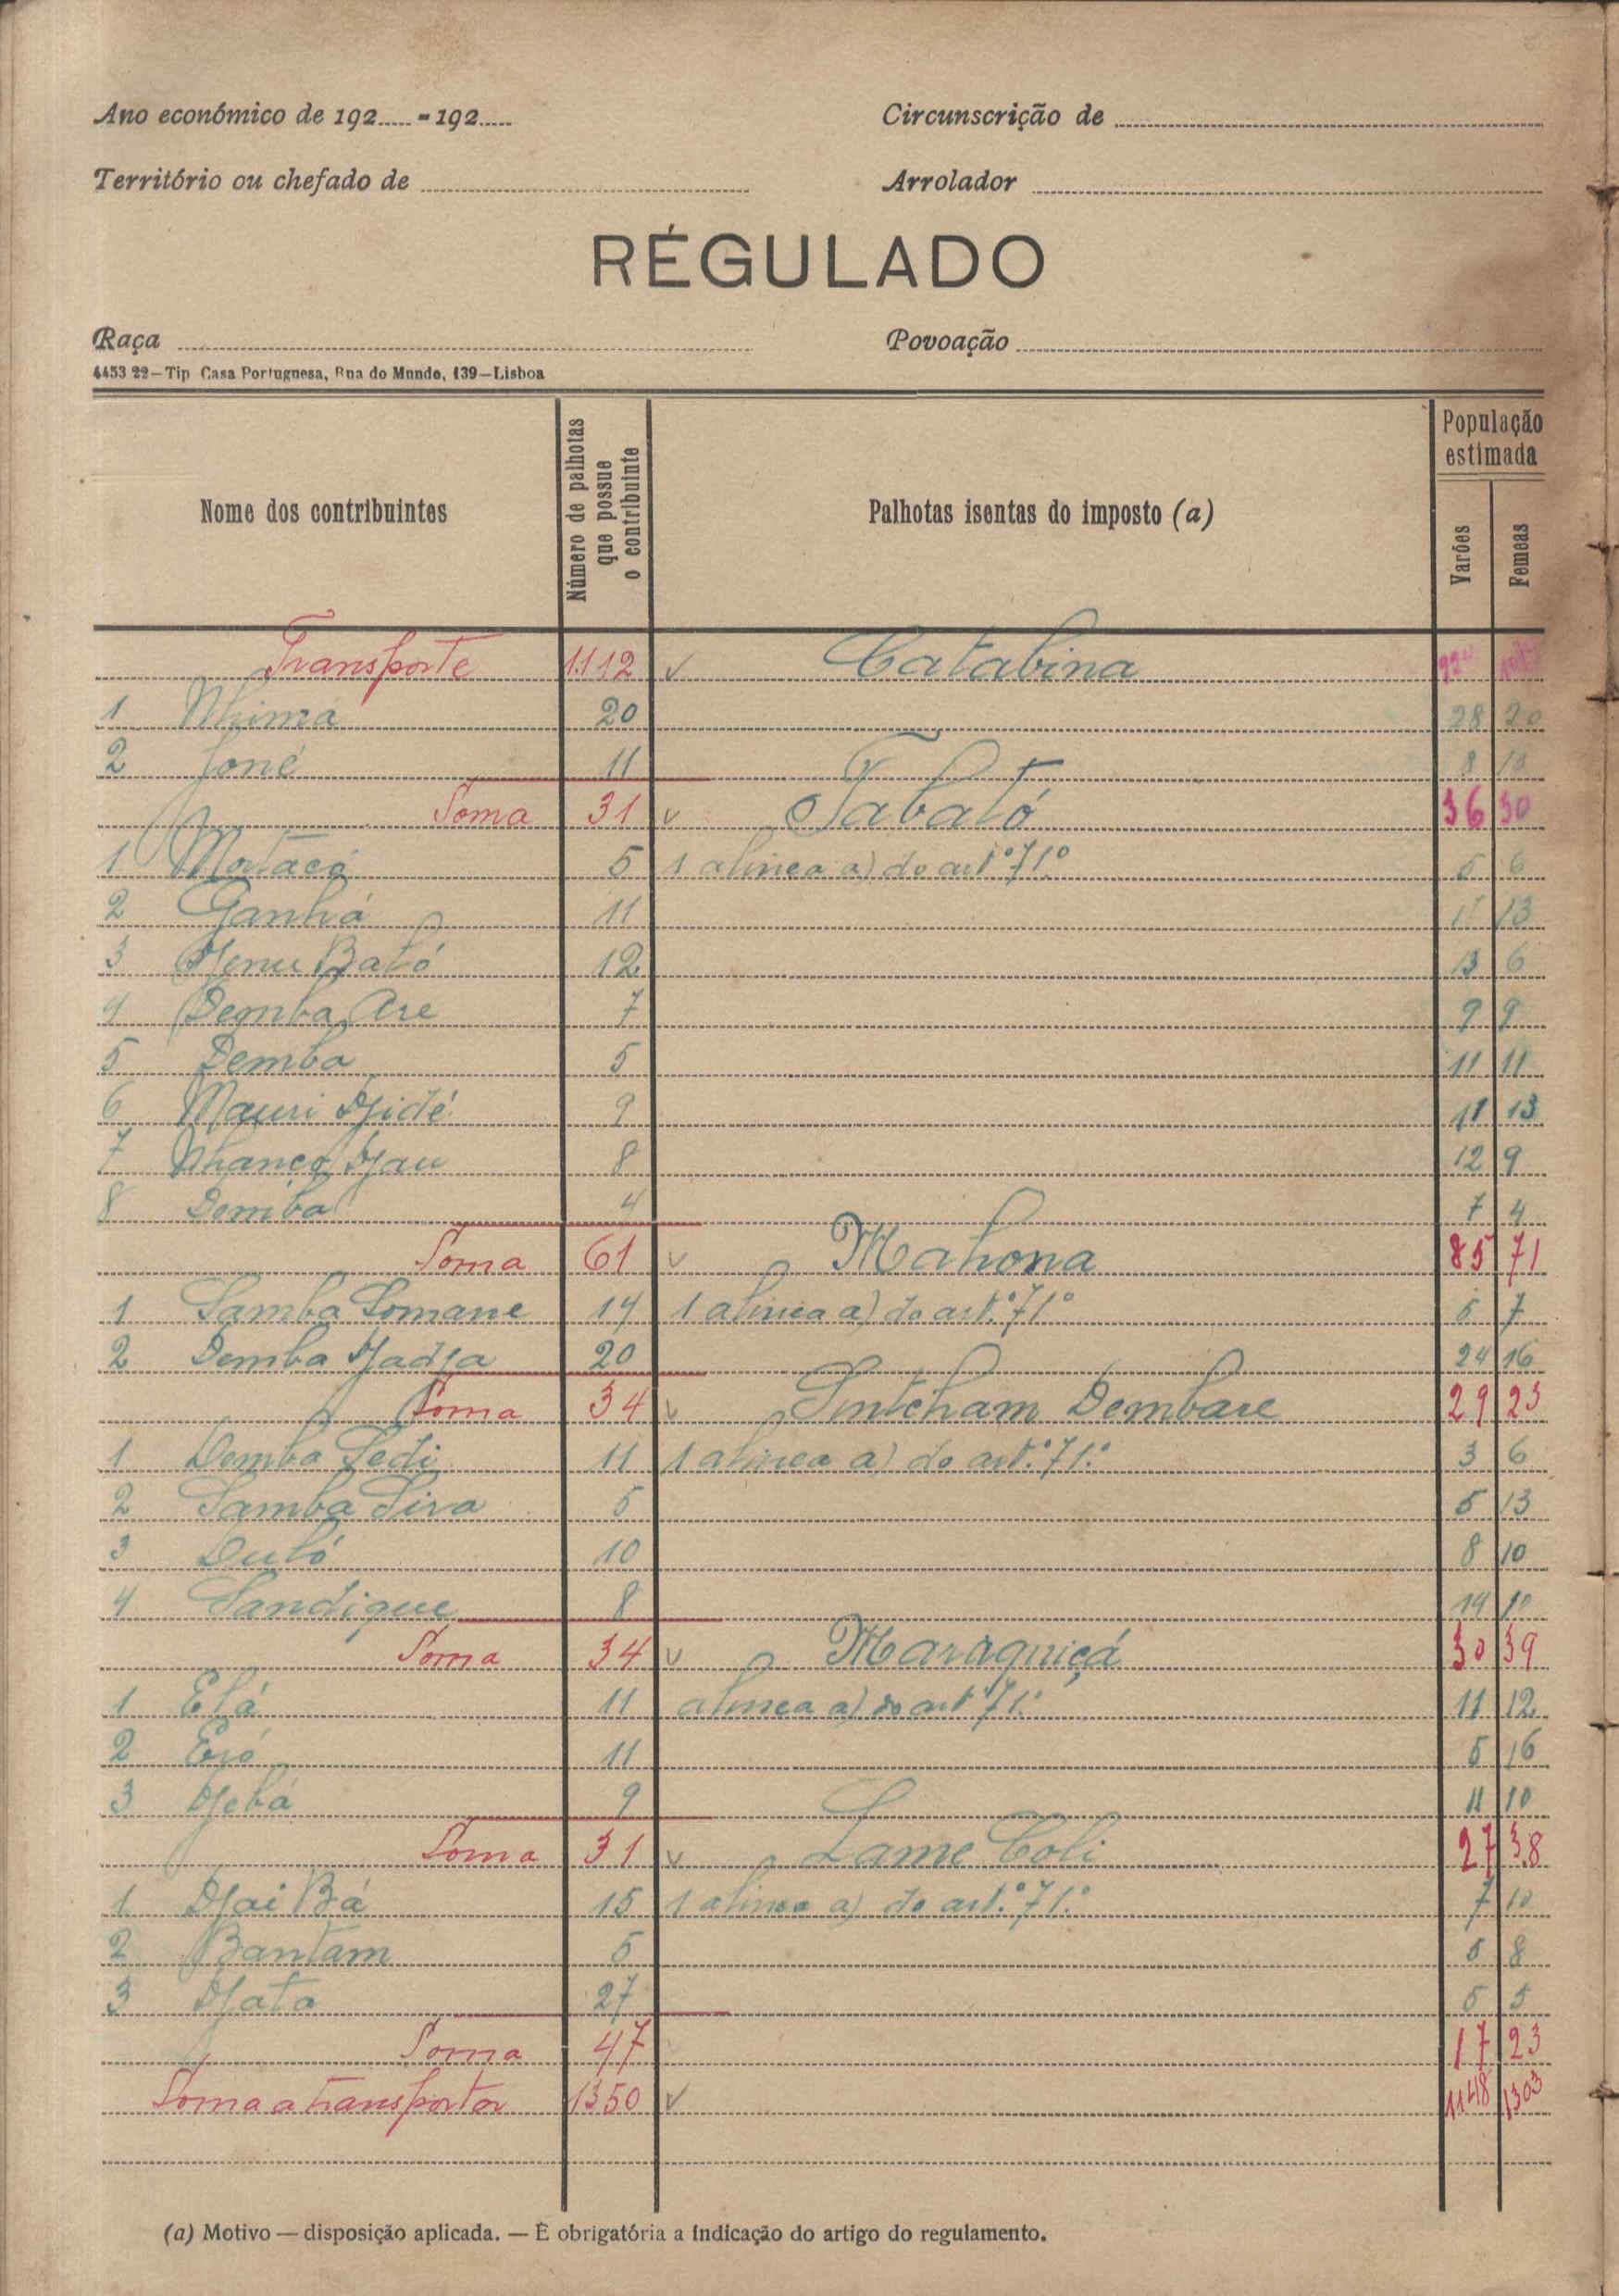 Ano económico de 192..... - 192.....
Circunscrição de
Território ou chefado de
Arrolador
RÉGULADO
Raça
Povoação
4453 22—Tip Casa Portuguesa, Rua do Mundo, 139—Lisboa
Nome dos contribuintes
Número de palhotas que possue o contribuinte
Palhotas isentas do imposto (a)
População estimada
Varões
Femeas
Transporte 1112 Catabina
1 Nhima 20 28 20
2 Joné 11 8 10
Soma 31 Tabató 36 30
1 5 1 alinea a) do artº 71º 5 6
2 Ganhá 11 11 13
3 Djenu Bató 12 13 6
4 Demba Are 7 9 9
5 Demba 5 11 11
6 Mauri Djidé 9 11 13
7 Nhanco Djau 8 12 9
8 Demba 4 7 4
Soma 61 Mahona 85 71
1 Samba Somane 14 1 alinea a) do art.º 71º 5 7
2 Demba Djadja 20 24 16
Soma 34 Sintcham Dembare 29 23
1 Demba Sedi 11 1 alinea a) do art.º 71.º 3 6
2 Samba Sira 5 5 13
3 Dutó 10 8 10
4 Sandigue 8 14 10
Soma 34 Maraquiçá 30 39
1 Elá 11 alinea a) do artº 71º 11 12
2 11 5 16
3 Djebá 9 11 10
Soma 31 Lame Coli 27 38
1 Djai Bá 15 1 alinea a) do art.º 71º 7 10
2 Bantam 5 5 8
3 Djata 27 5 5
Soma 47 17 23
Soma a transportar 1350 1148 1303
(a) Motivo — disposição aplicada. — É obrigatória a indicação do artigo do regulamento.